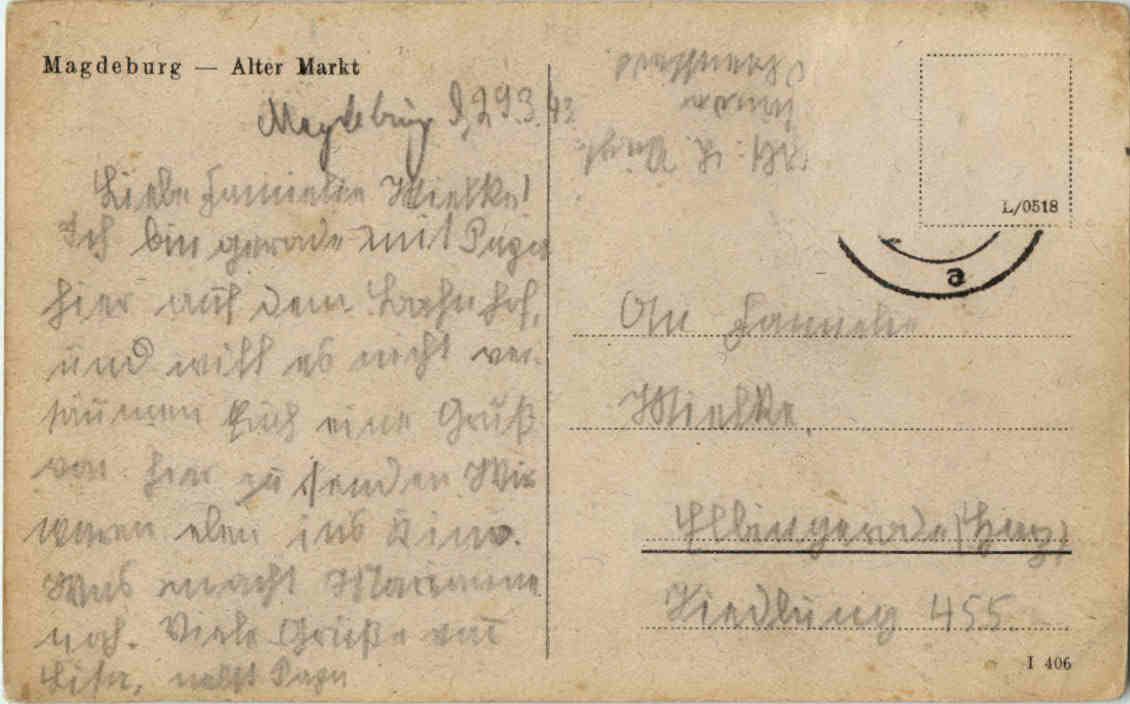 Magdeburg — Alter Markt
Magdeburg, 29.3.43
Liebe Familie Mielke!
Ich bin gerade mit Papa
hier auf dem Bahnhof,
und will es nicht ver-
säumen Euch eine Gruß
von hier zu senden Wir
waren eben ins Kino.
Was macht Marianne
noch. Viele Grüße von
Lisa, nebst Papa
L/0518
a
An Familie
Mielke,
Elbingerode (Harz)
Siedlung 455.
I 406